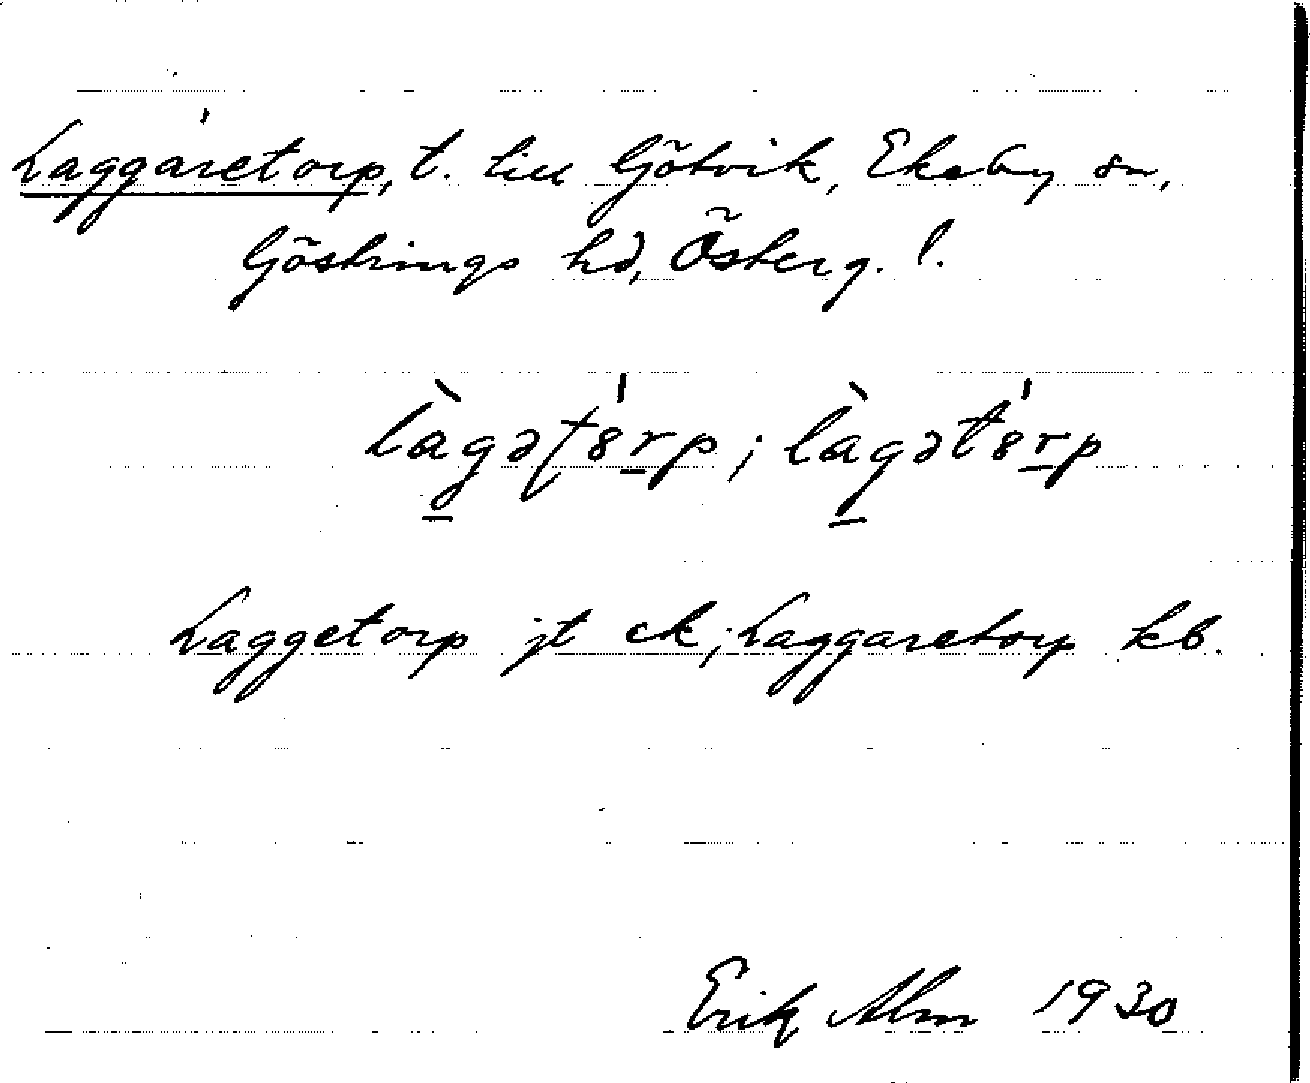 Laggaretorp, t. till Götvik, Ekeby sn,
Göstrings hd, Österg. l.
làgət8rp; làgət8rp
Laggetorp jt ek; Laggaretorp kb.
Erik Alm 1930